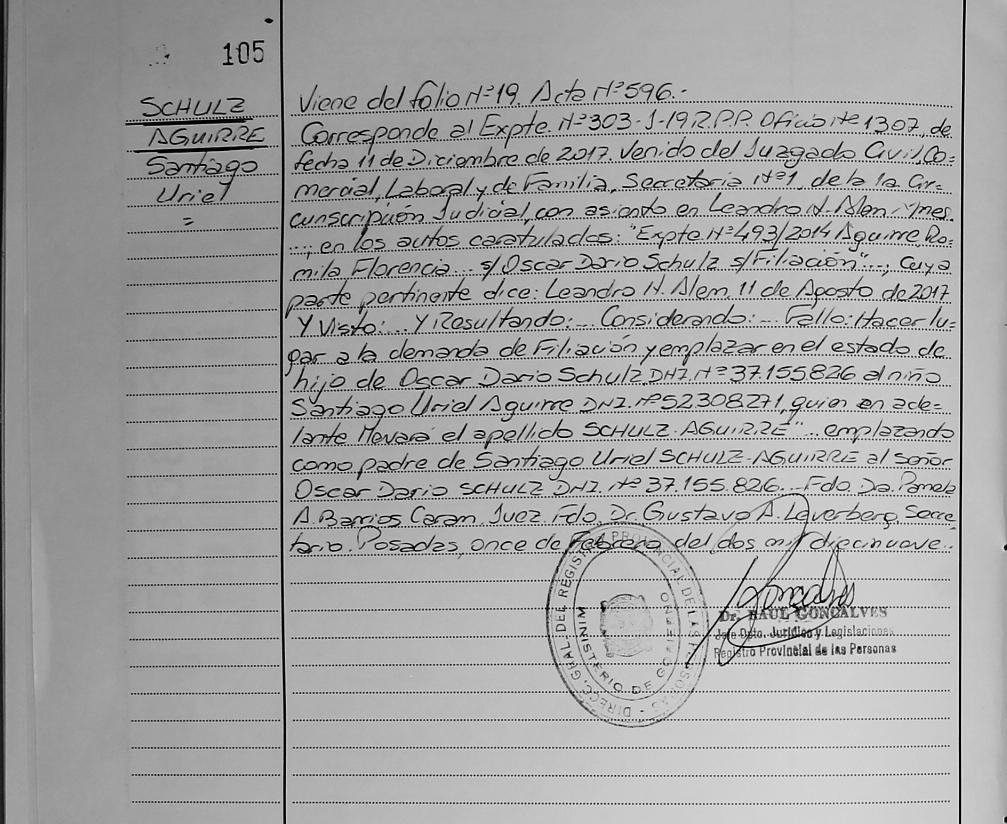 105
SCHULZ
AGUIRRE
Santiago
Uriel
=
Viene del folio Nº19. Acta Nº596.-
Corresponde al Expte. Nº303-J-19 R.P.P. Oficio Nº1307, de
fecha 11 de Diciembre de 2017. Venido del Juzgado Civil, Co-
mercial, Laboral y de Familia, Secretaria Nº1, de la 1a Cir-
cunscripción Judicial, con asiento en Leandro N. Alem - Mnes.
...; en los autos caratulados: "Expte Nº493/2014 Aguirre Ro-
mila Florencia... s/ Oscar Dario Schulz s/Filiación"..., cuya
parte pertinente dice: Leandro N. Alem, 11 de Agosto de 2017
Y Visto:... Y Resultando:... Considerando:... Fallo: Hacer lu-
gar a la demanda de Filiación y emplazar en el estado de
hijo de Oscar Dario Schulz DNI. Nº37.155.826 al niño
Santiago Uriel Aguirre DNI. Nº52308271, quien en ade-
lante llevará el apellido SCHULZ-AGUIRRE"... emplazando
como padre de Santiago Uriel SCHULZ-AGUIRRE al señor
Oscar Dario SCHULZ DNI. Nº37.155.826... Fdo. Da. Pamela
A. Barrios Caram. Juez. Fdo. Dr. Gustavo A. Laverberg, Secre-
tario. Posadas, once de Febrero del dos mil diecinueve.-
DIRECC. GRAL. DEL REGISTRO PROVINCIAL DE LAS PERSONAS -
MINISTERIO DE GOBIERNO
Dr. RAUL GONCALVES
Jefe Dpto. Jurídico y Legislaciones
Registro Provincial de las Personas